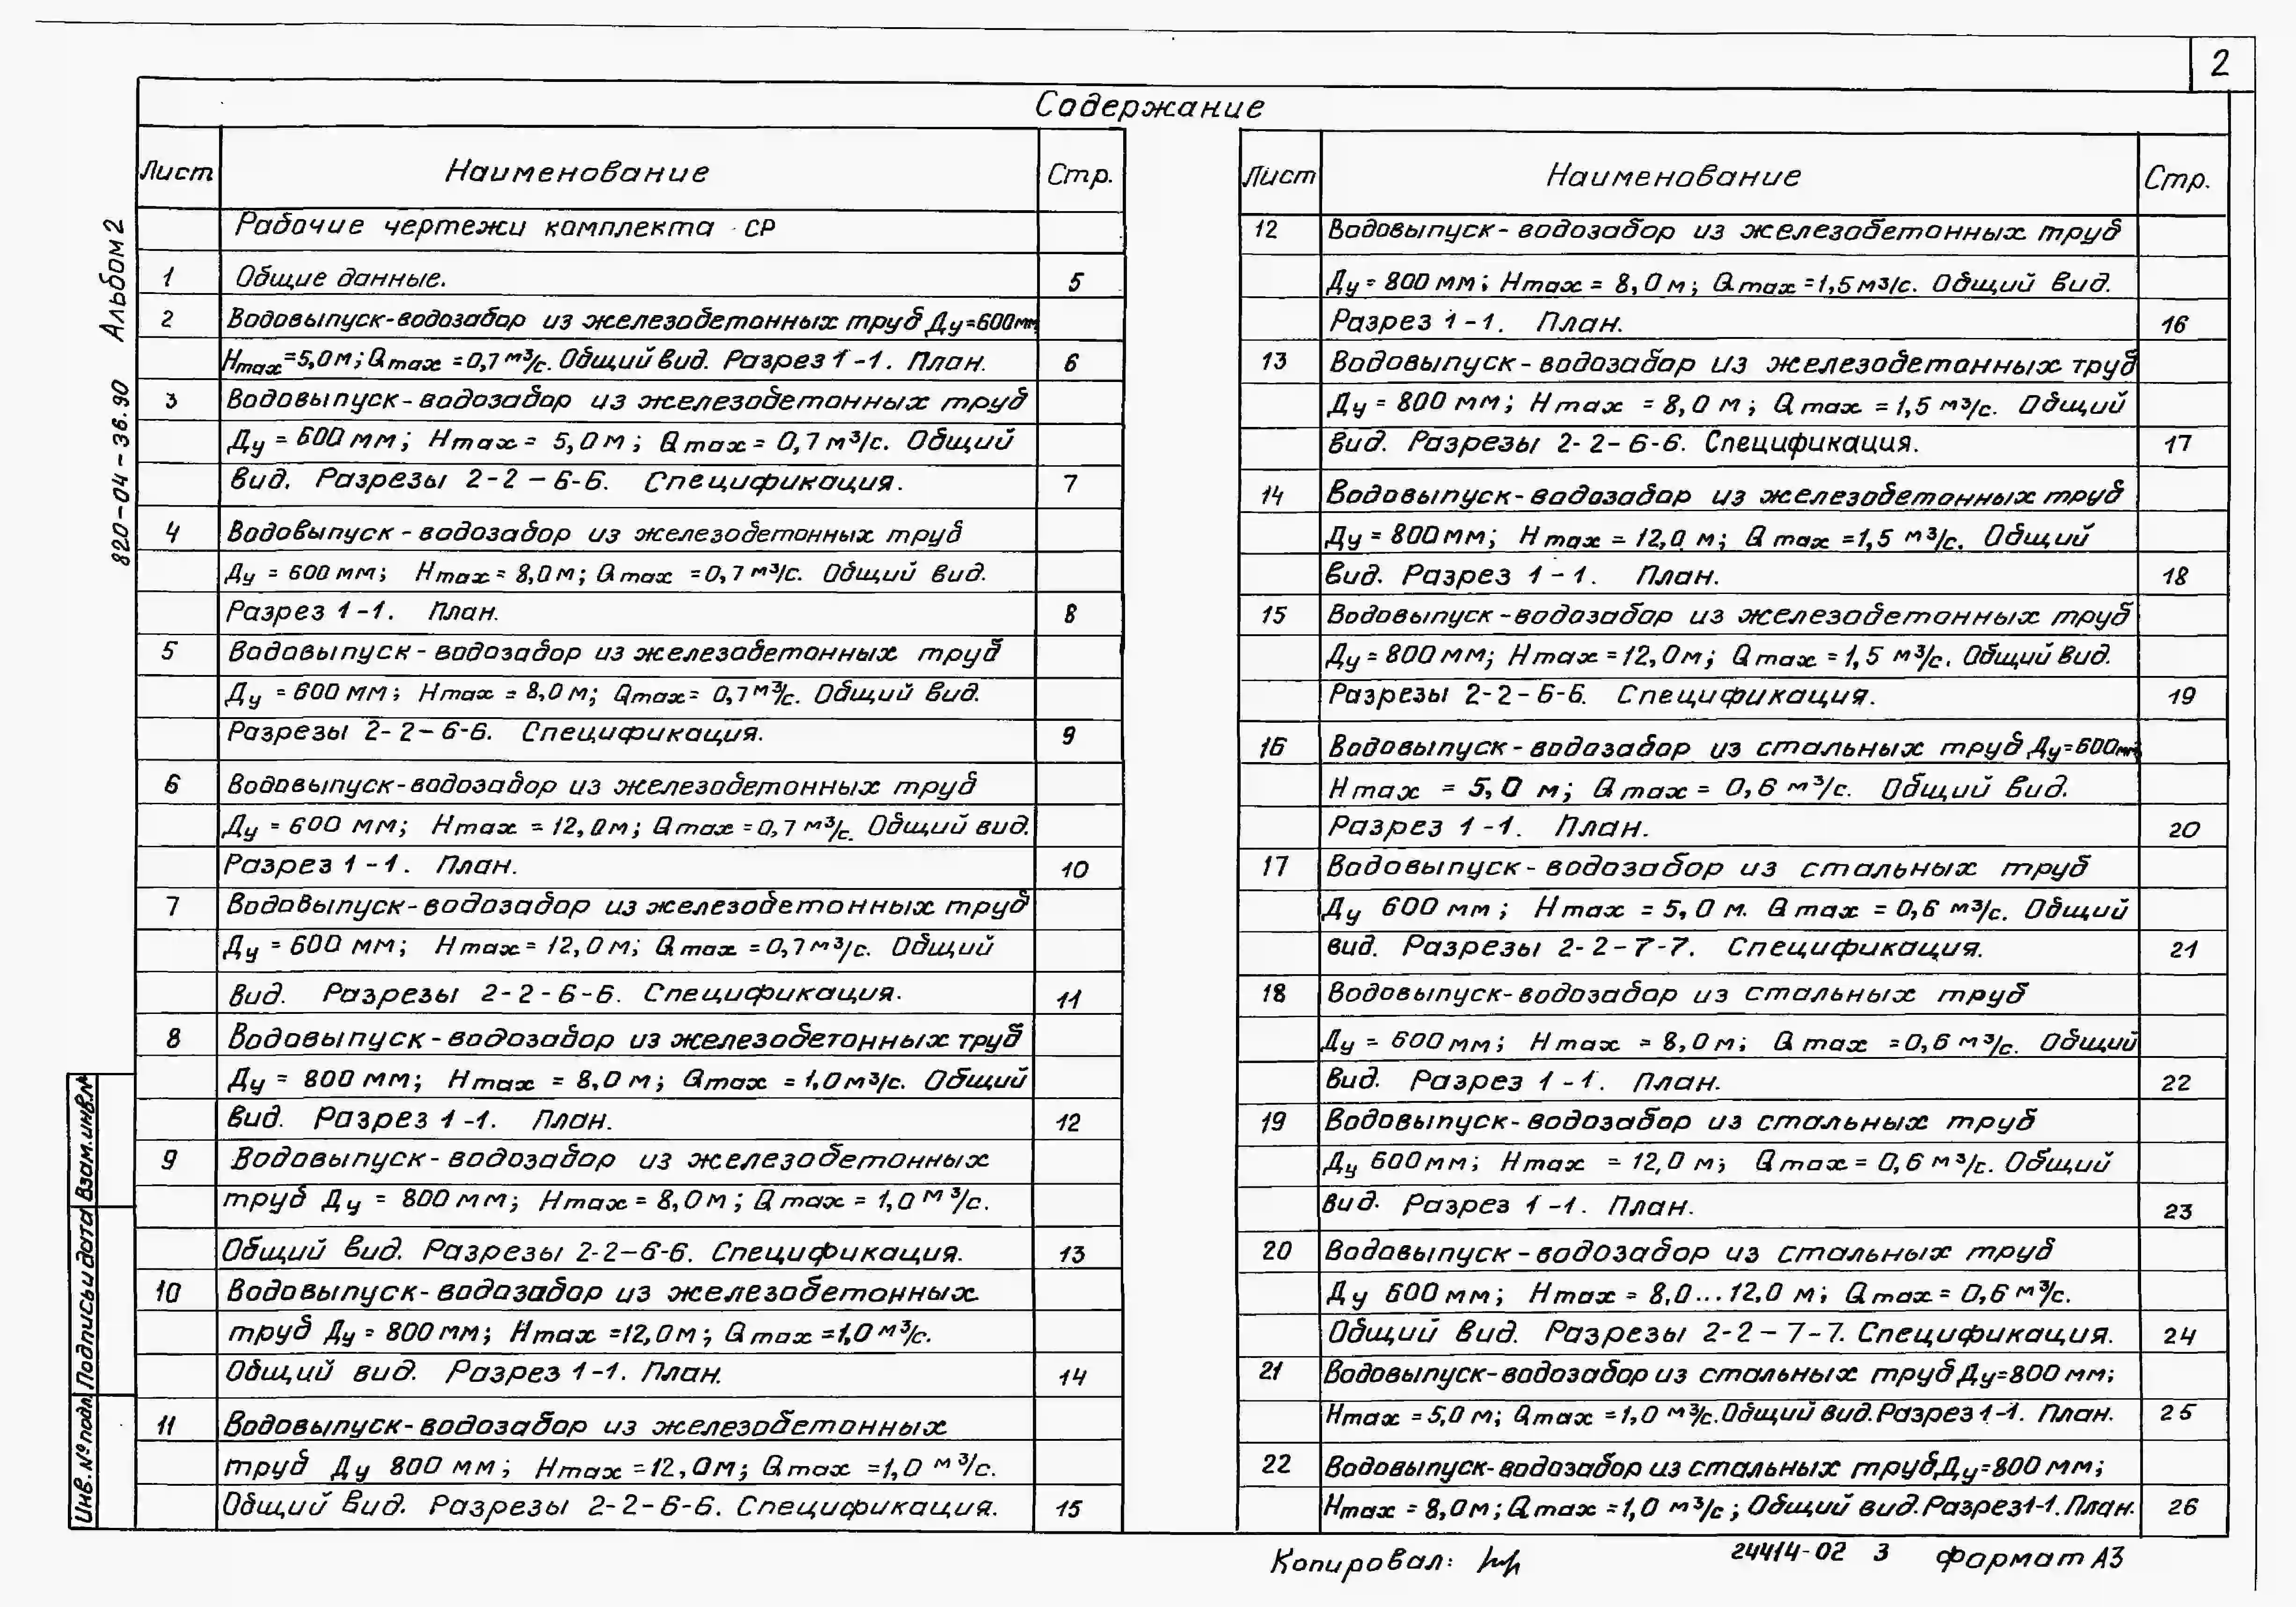 2
Содержание
Лист Наименование Стр.
Рабочие чертежи комплекта СР
1 Общие данные. 5
2 Водовыпуск-водозабор из железобетонных труб Ду=600мм
Hmax=5,0м; Qmax=0,7 м³/с. Общий вид. Разрез 1-1. План. 6
3 Водовыпуск-водозабор из железобетонных труб
Ду=600мм; Hmax=5,0м; Qmax=0,7м³/с. Общий
вид. Разрезы 2-2-6-6. Спецификация. 7
4 Водовыпуск-водозабор из железобетонных труб
Ду=600мм; Hmax=8,0м; Qmax=0,7 м³/с. Общий вид.
Разрез 1-1. План. 8
5 Водовыпуск-водозабор из железобетонных труб
Ду=600мм; Hmax=8,0м; Qmax=0,7м³/с. Общий вид.
Разрезы 2-2-6-6. Спецификация. 9
6 Водовыпуск-водозабор из железобетонных труб
Ду=600 мм; Hmax=12,0м; Qmax=0,7 м³/с. Общий вид.
Разрез 1-1. План. 10
7 Водовыпуск-водозабор из железобетонных труб
Ду=600 мм; Hmax=12,0м; Qmax=0,7м³/с. Общий
вид. Разрезы 2-2-6-6. Спецификация. 11
8 Водовыпуск-водозабор из железобетонных труб
Ду=800мм; Hmax=8,0м; Qmax=1,0м³/с. Общий
вид. Разрез 1-1. План. 12
9 Водовыпуск-водозабор из железобетонных
труб Ду=800мм; Hmax=8,0м; Qmax=1,0м³/с.
Общий вид. Разрезы 2-2-6-6. Спецификация. 13
10 Водовыпуск-водозабор из железобетонных
труб Ду=800мм; Hmax=12,0м; Qmax=1,0м³/с.
Общий вид. Разрез 1-1. План. 14
11 Водовыпуск-водозабор из железобетонных
труб Ду 800мм; Hmax=12,0м; Qmax=1,0 м³/с.
Общий вид. Разрезы 2-2-6-6. Спецификация. 15
Лист Наименование Стр.
12 Водовыпуск-водозабор из железобетонных труб
Ду=800мм; Hmax=8,0м; Qmax=1,5м³/с. Общий вид.
Разрез 1-1. План. 16
13 Водовыпуск-водозабор из железобетонных труб
Ду=800мм; Hmax=8,0 м; Qmax=1,5 м³/с. Общий
вид. Разрезы 2-2-6-6. Спецификация. 17
14 Водовыпуск-водозабор из железобетонных труб
Ду=800мм; Hmax=12,0 м; Qmax=1,5 м³/с. Общий
вид. Разрез 1-1. План. 18
15 Водовыпуск-водозабор из железобетонных труб
Ду=800мм; Hmax=12,0м; Qmax=1,5 м³/с. Общий вид.
Разрезы 2-2-6-6. Спецификация. 19
16 Водовыпуск-водозабор из стальных труб Ду=600мм;
Hmax=5,0 м; Qmax=0,6 м³/с. Общий вид.
Разрез 1-1. План. 20
17 Водовыпуск-водозабор из стальных труб
Ду 600мм; Hmax=5,0 м. Qmax=0,6 м³/с. Общий
вид. Разрезы 2-2-7-7. Спецификация. 21
18 Водовыпуск-водозабор из стальных труб
Ду=600мм; Hmax=8,0м; Qmax=0,6м³/с. Общий
вид. Разрез 1-1. План. 22
19 Водовыпуск-водозабор из стальных труб
Ду 600мм; Hmax=12,0 м; Qmax=0,6 м³/с. Общий
вид. Разрез 1-1. План. 23
20 Водовыпуск-водозабор из стальных труб
Ду 600мм; Hmax=8,0...12,0 м; Qmax=0,6м³/с.
Общий вид. Разрезы 2-2-7-7. Спецификация. 24
21 Водовыпуск-водозабор из стальных труб Ду=800 мм;
Hmax=5,0 м; Qmax=1,0 м³/с. Общий вид. Разрез 1-1. План. 25
22 Водовыпуск-водозабор из стальных труб Ду=800мм;
Hmax=8,0м; Qmax=1,0 м³/с; Общий вид. Разрез 1-1. План. 26
820-04-36.90 Альбом 2
Взам.инв.№
Подпись и дата
Инв.№подл
Копировал: 24414-02 3 формат А3